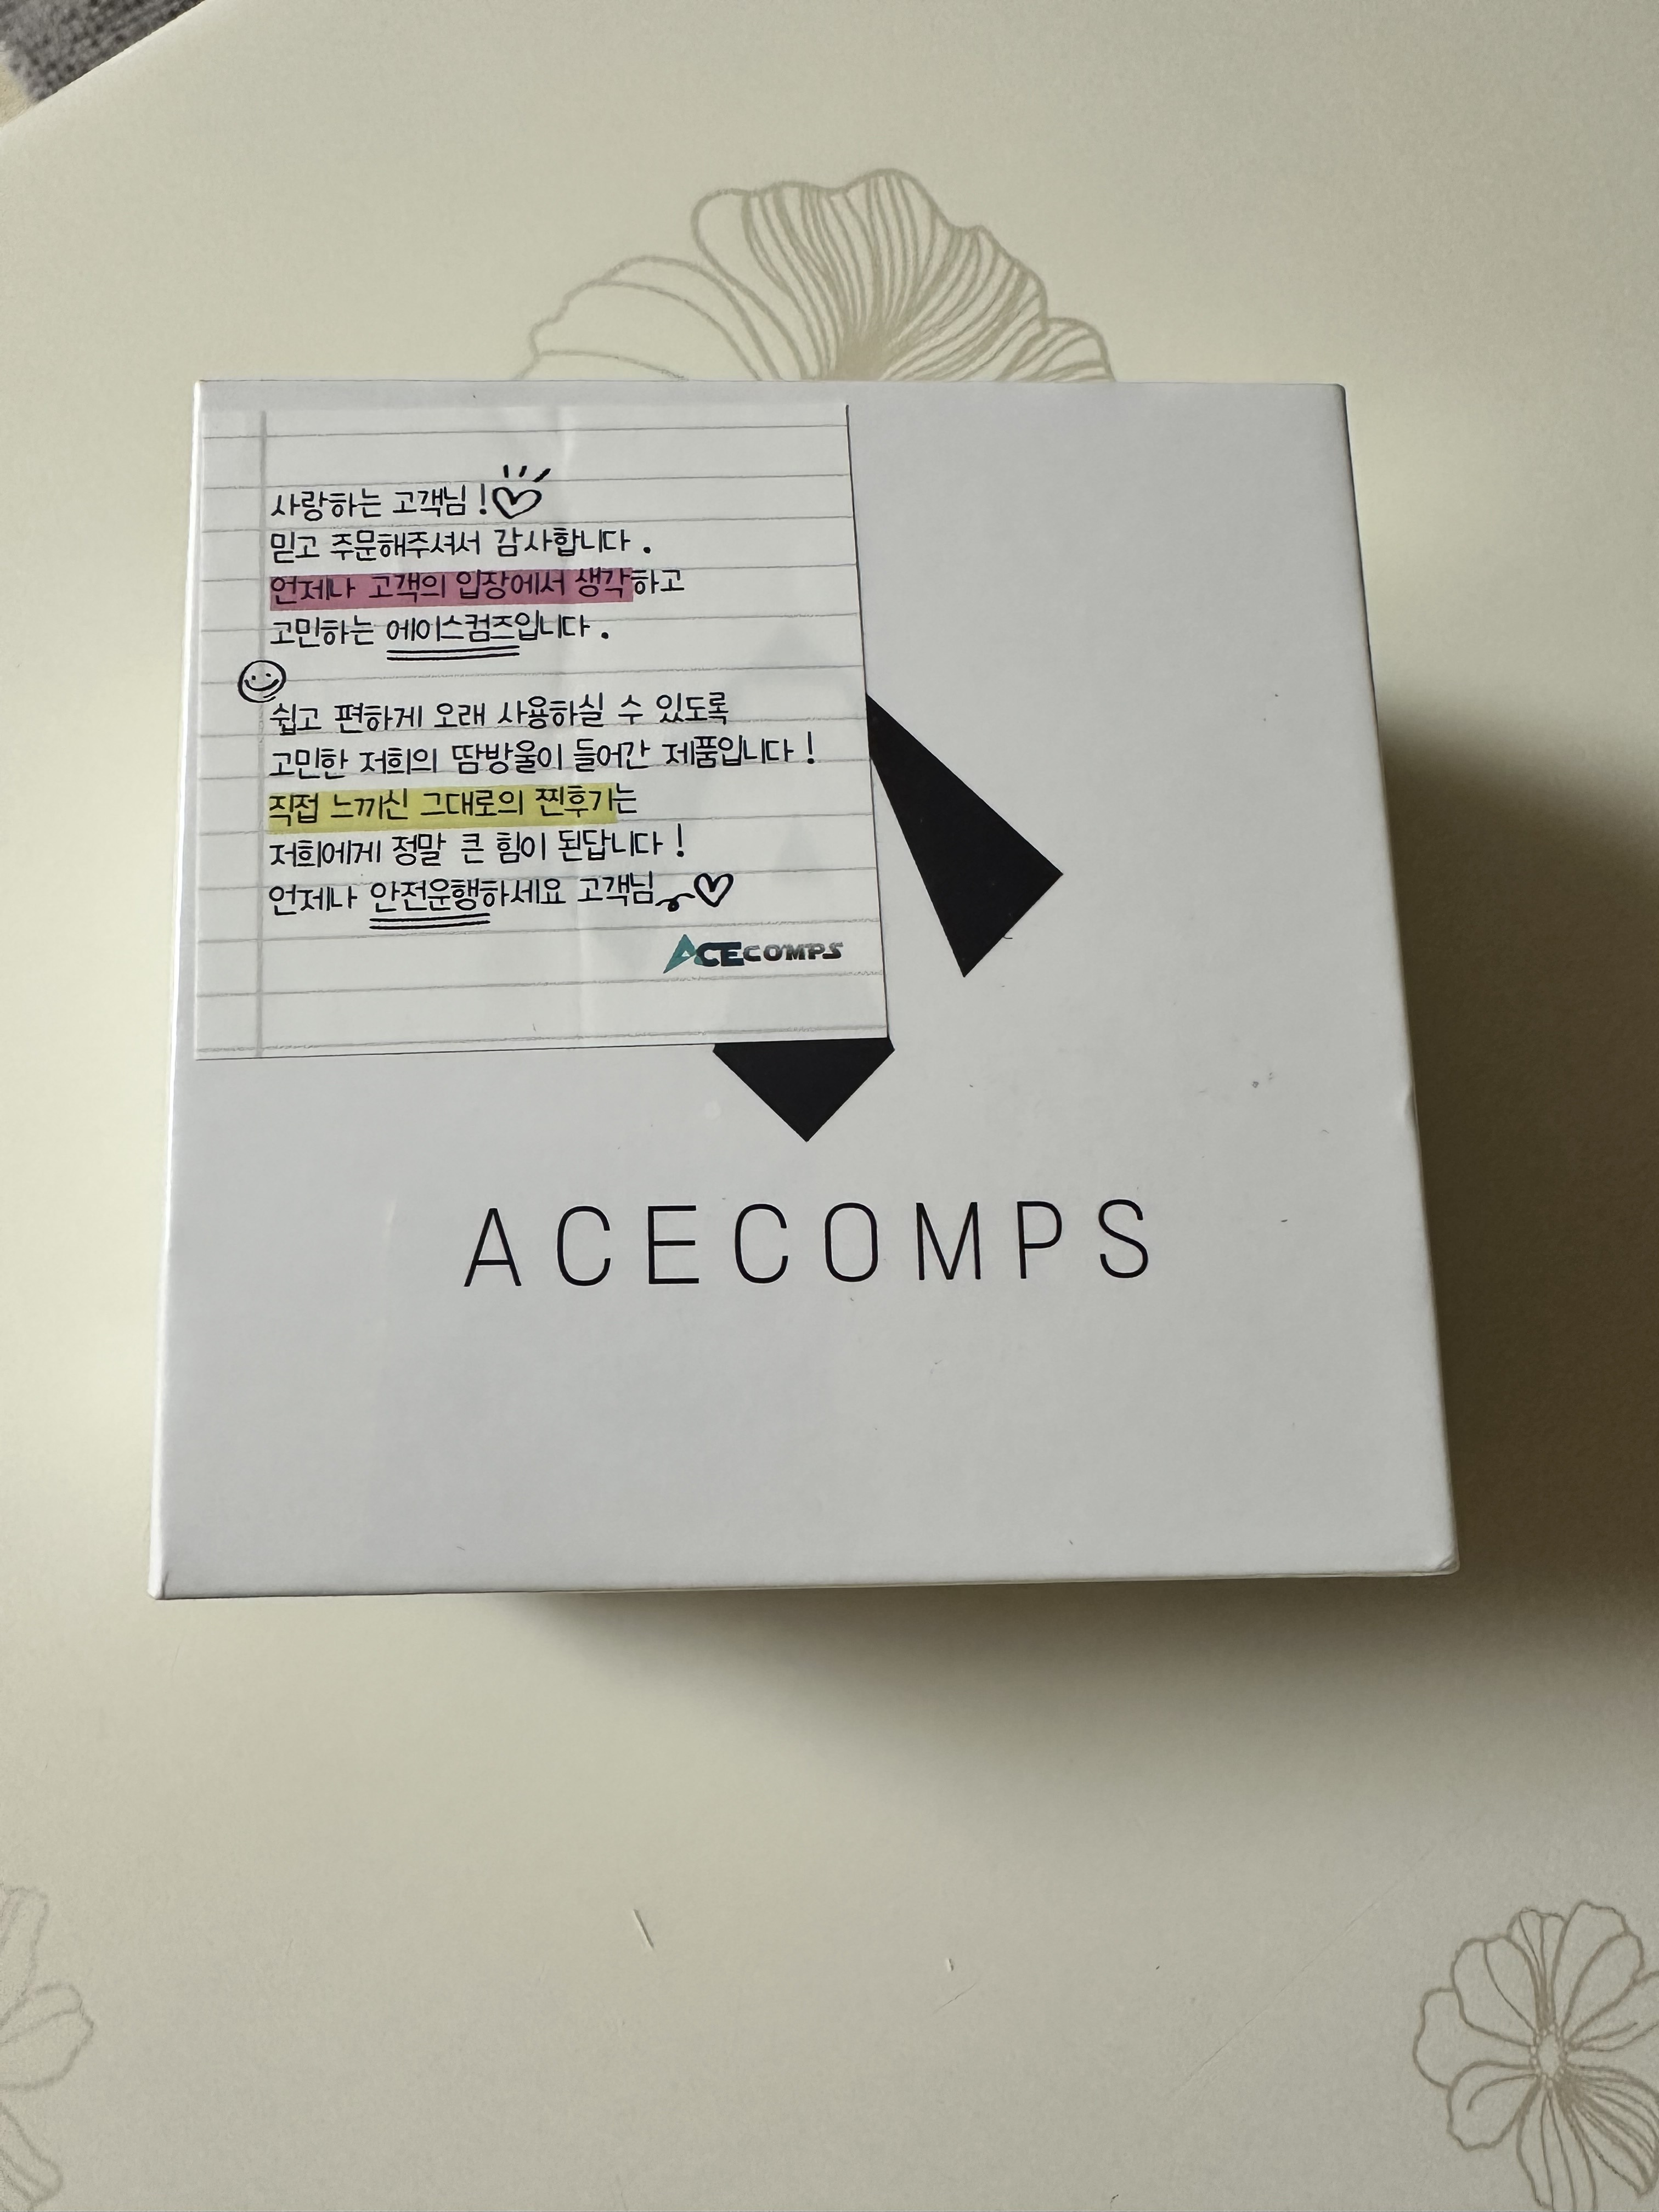 사랑하는 고객님!
믿고 주문해주셔서 감사합니다.
언제나 고객의 입장에서 생각하고
고민하는 에이스컴즈입니다.
쉽고 편하게 오래 사용하실 수 있도록
고민한 저희의 땀방울이 들어간 제품입니다!
직접 느끼신 그대로의 찐후기는
저희에게 정말 큰 힘이 된답니다!
언제나 안전운행하세요 고객님
ACECOMPS
ACECOMPS